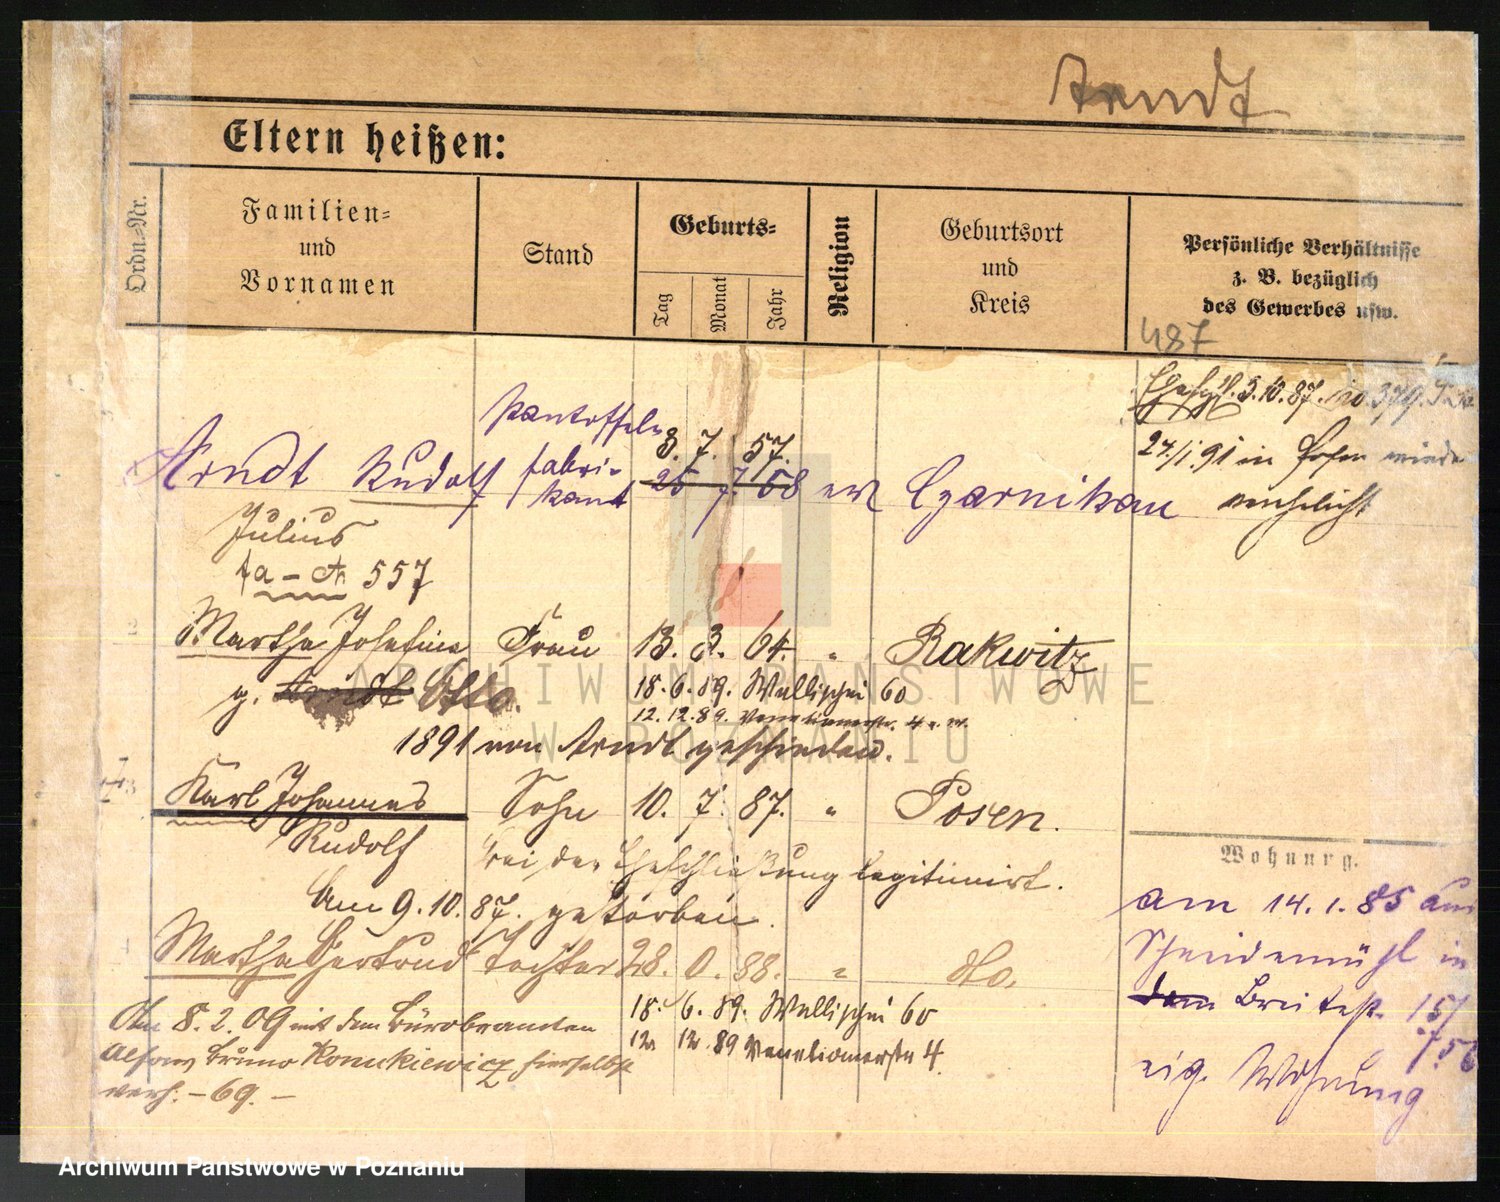 Arndt
Eltern heißen:
Ordn.-Nr.
Familien-
und
Vornamen
Stand
Geburts-
Tag
Monat
Jahr
Religion
Geburtsort
und
Kreis
Persönliche Verhältnisse
z. B. bezüglich
des Gewerbes usw.
487
Eheschl. 5.10.87. No. 379.
24/1.91 in Posen wieder
verehelicht
Pantoffel-
8. 7. 57.
Arndt Rudolf fabri- 25 7. 58 ev Czarnikau
kant
Julius
557
Martha Josefine Frau 13. 3. 64. " Rakwitz
g. Arndt Otto. 18.6.89. Wallischei 60
12.12.89. Venetianerstr. 4
1891 von Arndt geschieden.
Karl Johannes Sohn 10. 7. 87. " Posen.
Rudolf
bei der Eheschließung legitimirt.
Am 9.10.87. gestorben.
Martha Gertrud Tochter 28. 88. " do.
18. 6. 89. Wallischei 60
12. 12. 89 Venetianerstr 4.
Am 8.2.09 mit dem Bürobeamten
Alfons Bruno hierselbst
verh. – 69. –
Wohnung.
am 14.1.85 aus
Schneidemühl in
dem Breitestr. 15/
7.56
eig. Wohnung
ARCHIWUM PAŃSTWOWE
W POZNANIU
Archiwum Państwowe w Poznaniu